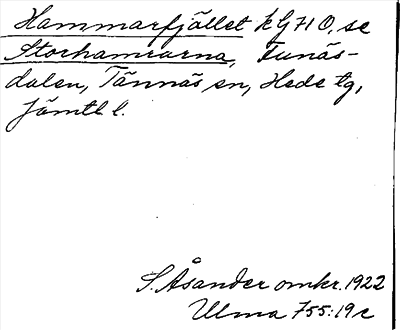 Hammarfjället k G 71 O, se
Storhamrarna, Funäs-
dalen, Tännäs sn, Hede tg,
Jämtl l.
S. Åsander omkr. 1922
Ulma 755:19 c